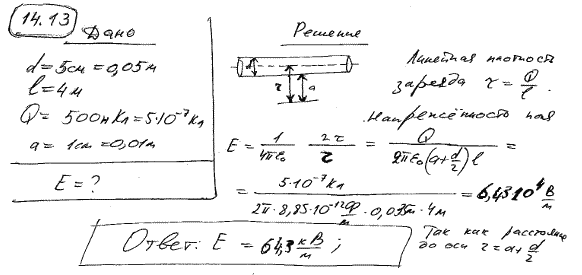 14.13
Дано
d = 5см = 0,05м
l = 4м
Q = 500нКл = 5·10⁻⁷Кл
a = 1см = 0,01м
E = ?
Решение
d
r
a
Линейная плотность
заряда τ = Q/l.
Напряжённость поля
E = 1/(4πε₀) 2τ/r = Q/(2πε₀(a+d/2)l) =
= 5·10⁻⁷Кл/(2π·8,85·10⁻¹²Ф/м·0,035м·4м) = 6,43·10⁴ В/м
Так как расстояние
до оси r = a + d/2
Ответ: E = 64,3 кВ/м;